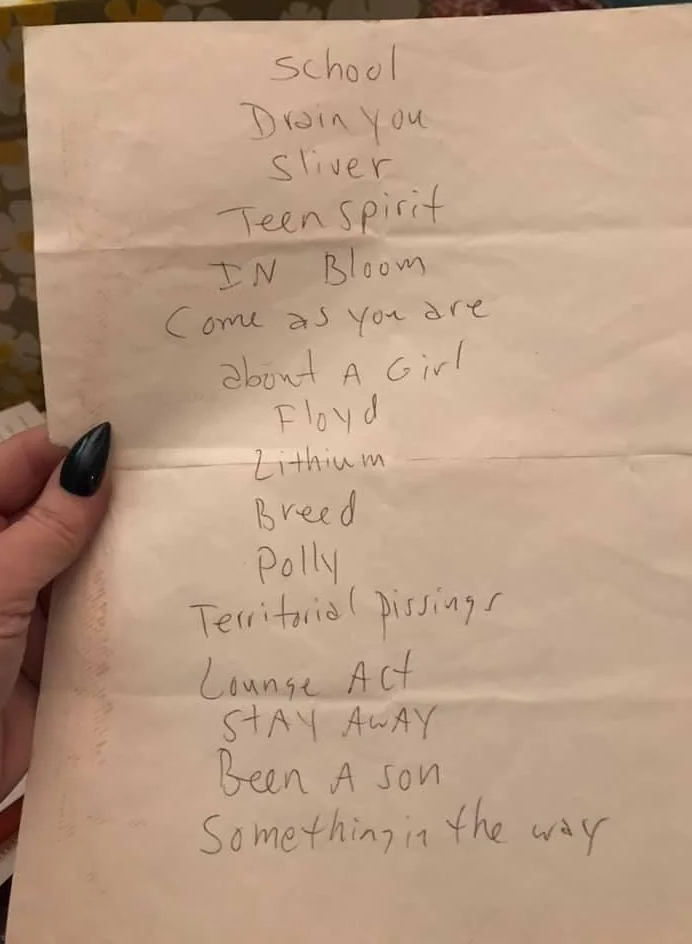 School
Drain you
Sliver
Teen spirit
IN Bloom
Come as you are
about A Girl
Floyd
Lithium
Breed
Polly
Territorial pissings
Lounge Act
StAY AwAY
Been A son
Something in the way